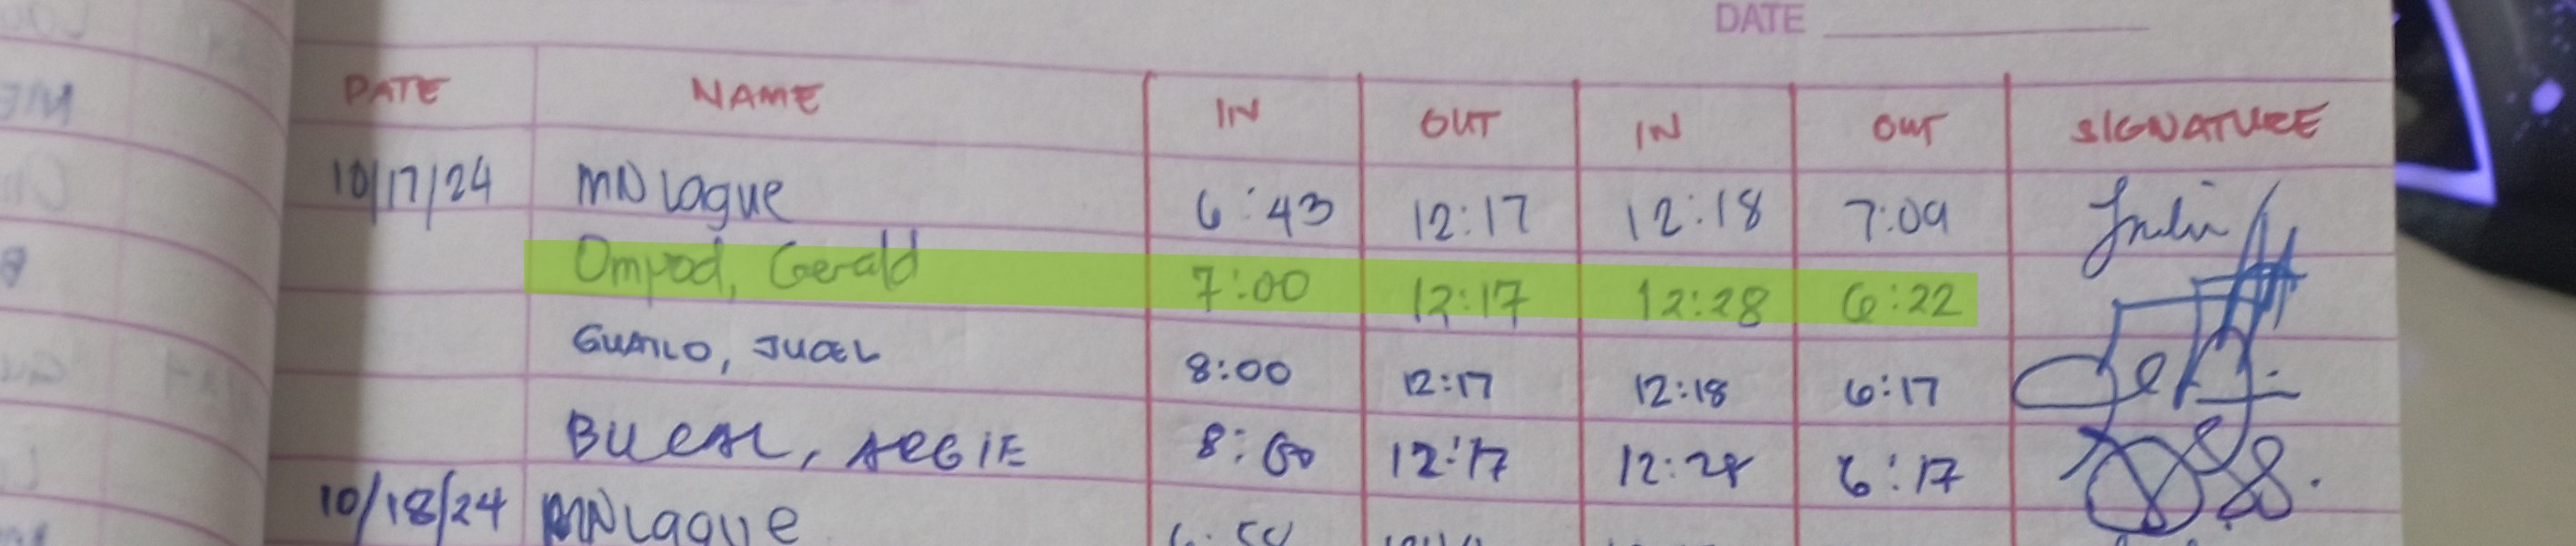 DATE
DATE NAME IN OUT IN OUT SIGNATURE
10/17/24 MNLague 6:43 12:17 12:18 7:09
Ompod, Gerald 7:00 12:17 12:28 6:22
8:00 12:17 12:18 6:17
8:00 12:17 6:17
10/18/24 MNLague